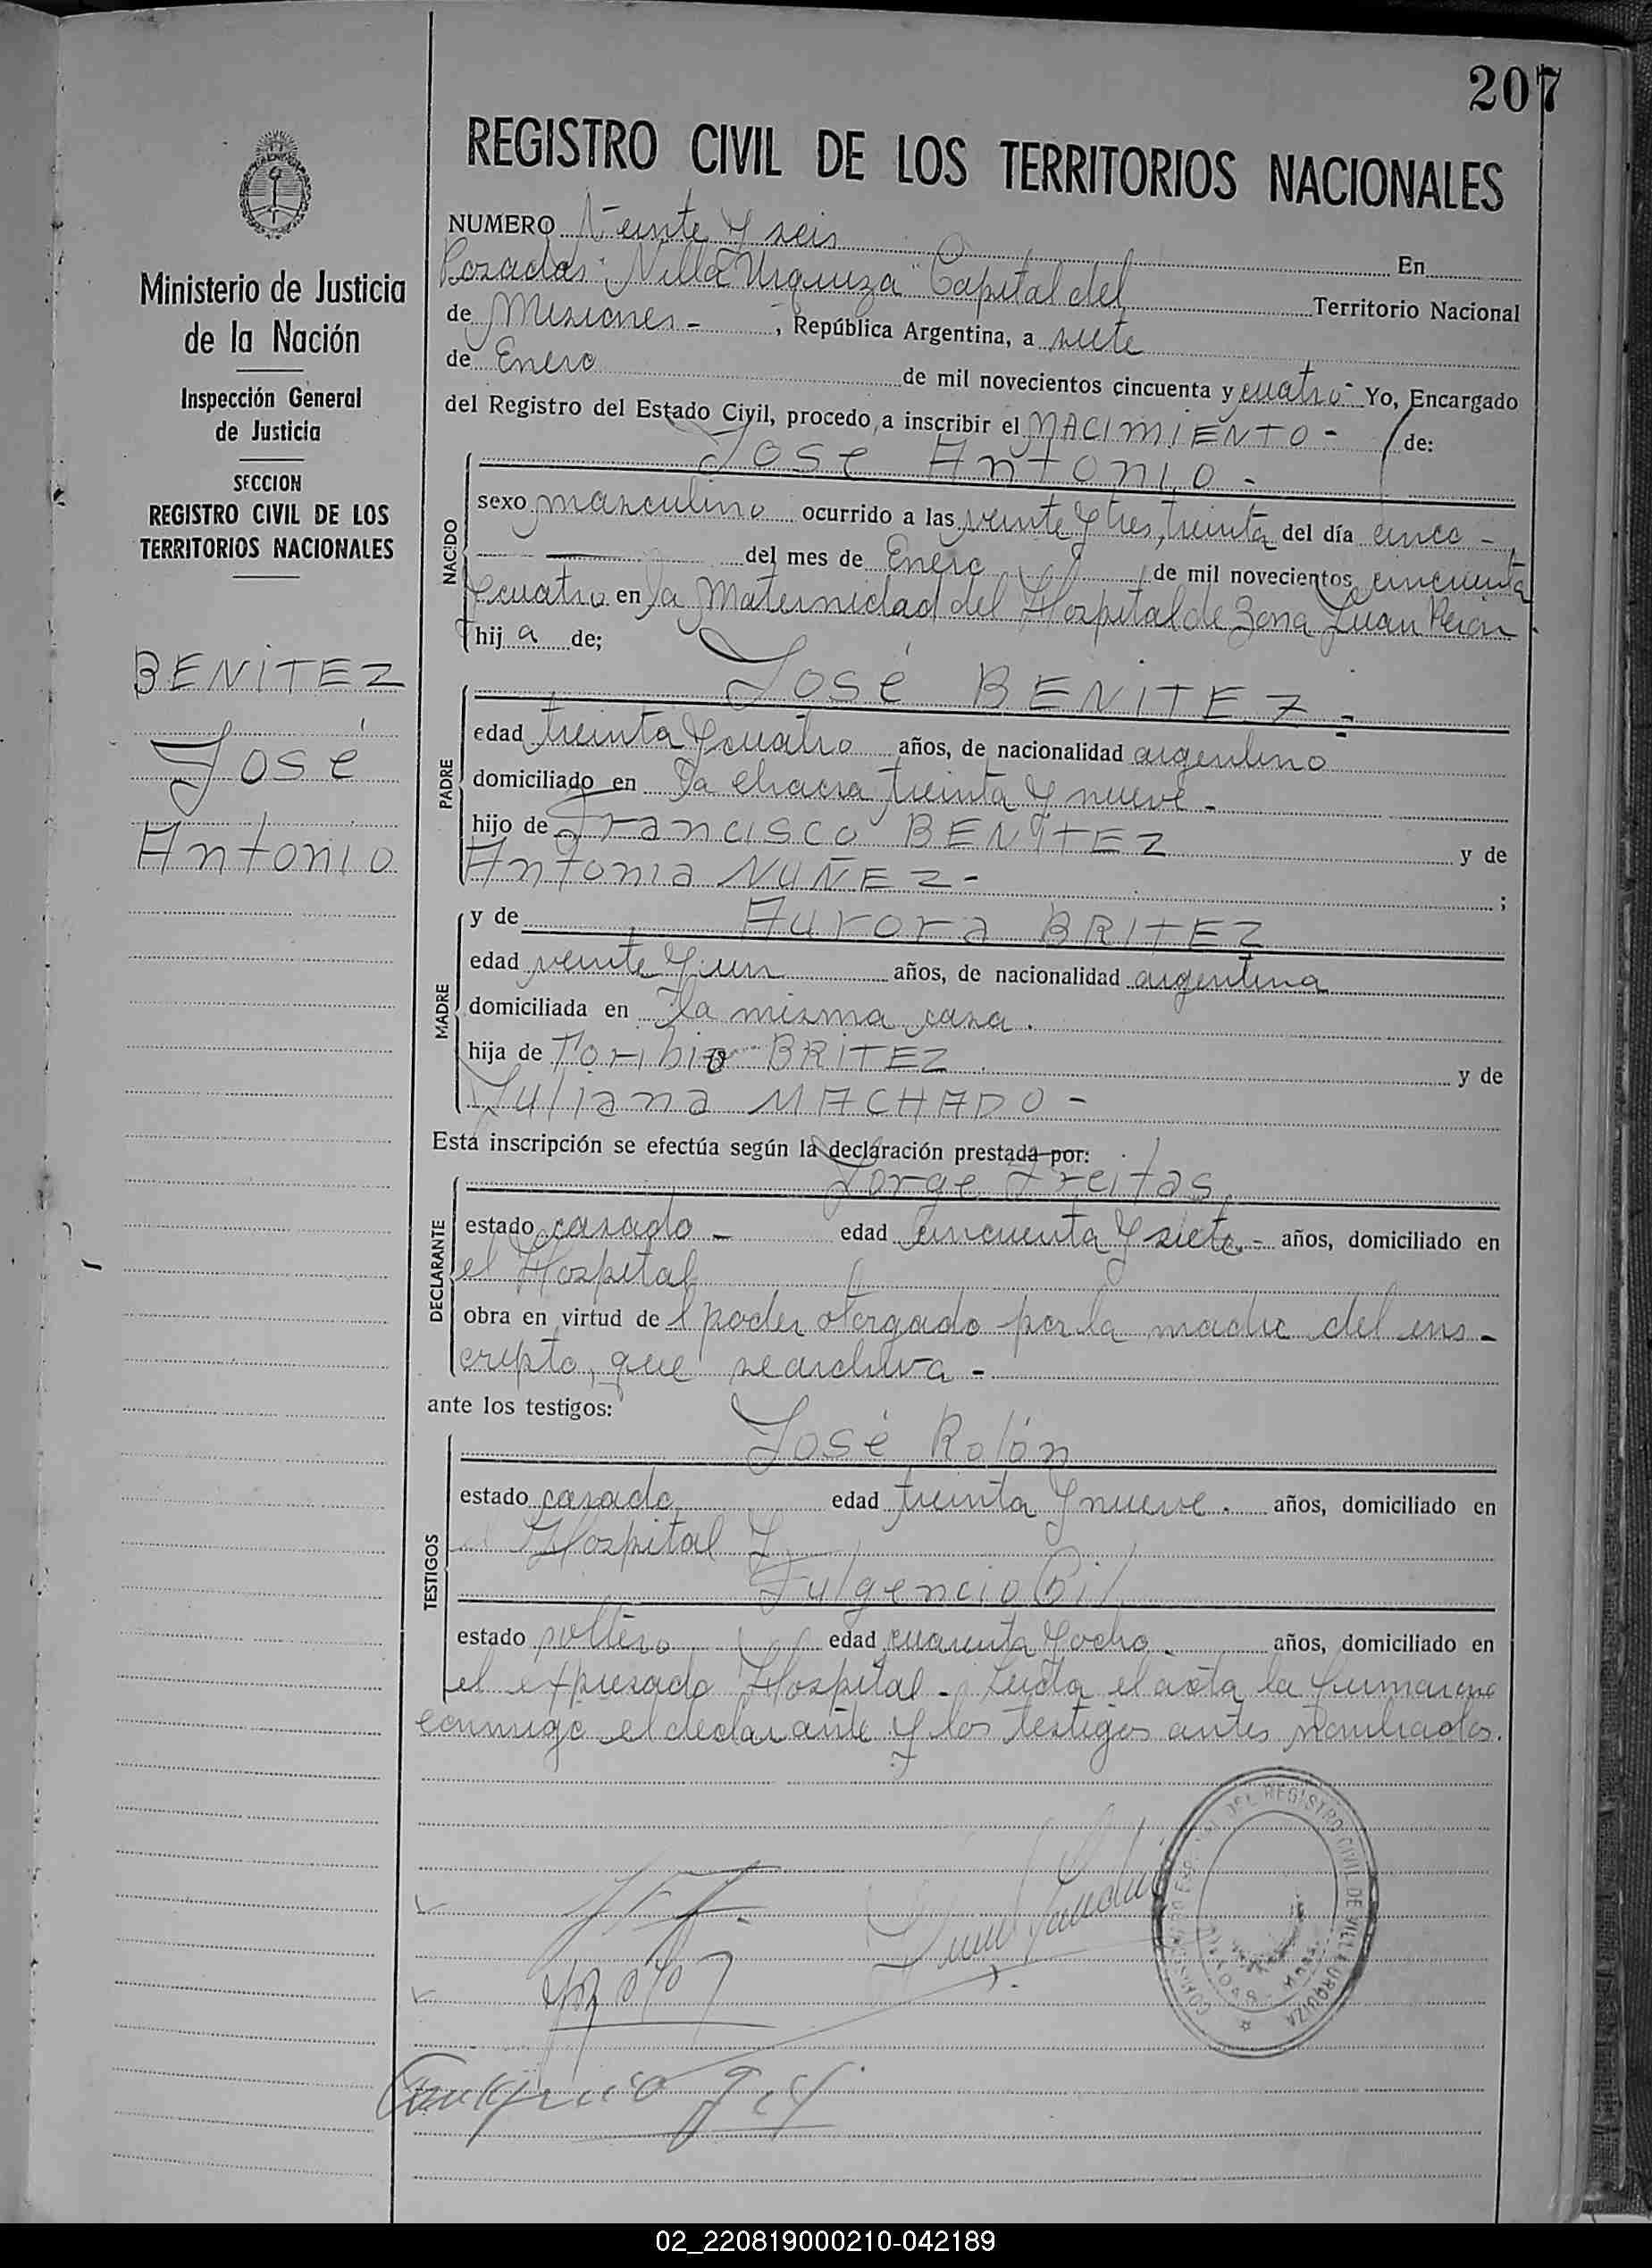 207
REGISTRO CIVIL DE LOS TERRITORIOS NACIONALES
Ministerio de Justicia
de la Nación
Inspección General
de Justicia
SECCION
REGISTRO CIVIL DE LOS
TERRITORIOS NACIONALES
BENITEZ
José
Antonio
NUMERO Veinte y seis En
Posadas "Villa Urquiza" Capital del Territorio Nacional
de Misiones - , República Argentina, a siete
de Enero de mil novecientos cincuenta y cuatro - Yo, Encargado
del Registro del Estado Civil, procedo a inscribir el NACIMIENTO - de:
José Antonio -
NACIDO
sexo masculino ocurrido a las veinte y tres, treinta del día cinco -
del mes de Enero de mil novecientos cincuenta
y cuatro en la Maternidad del Hospital de Zona Juan Perón
hij a de;
José BENITEZ -
PADRE
edad treinta y cuatro años, de nacionalidad argentino
domiciliado en la chacra treinta y nueve -
hijo de Francisco BENITEZ y de
Antonia NUÑEZ - ;
MADRE
y de Aurora BRITEZ
edad veinte y un años, de nacionalidad argentina
domiciliada en la misma casa.
hija de Toribio BRITEZ y de
Juliana MACHADO -
Esta inscripción se efectúa según la declaración prestada por:
Jorge Freitas
DECLARANTE
estado casado - edad cincuenta y siete - años, domiciliado en
el Hospital
obra en virtud de l poder otorgado por la madre del ins-
cripto, que se archiva -
ante los testigos:
José Rolón
TESTIGOS
estado casado edad treinta y nueve. años, domiciliado en
el Hospital y
Fulgencio Gil
estado soltero edad cuarenta y ocho. años, domiciliado en
el expresado Hospital - Leída el acta la firmaron
conmigo el declarante y los testigos antes nombrados.
DEL REGISTRO CIVIL DE VILLA URQUIZA
02_220819000210-042189